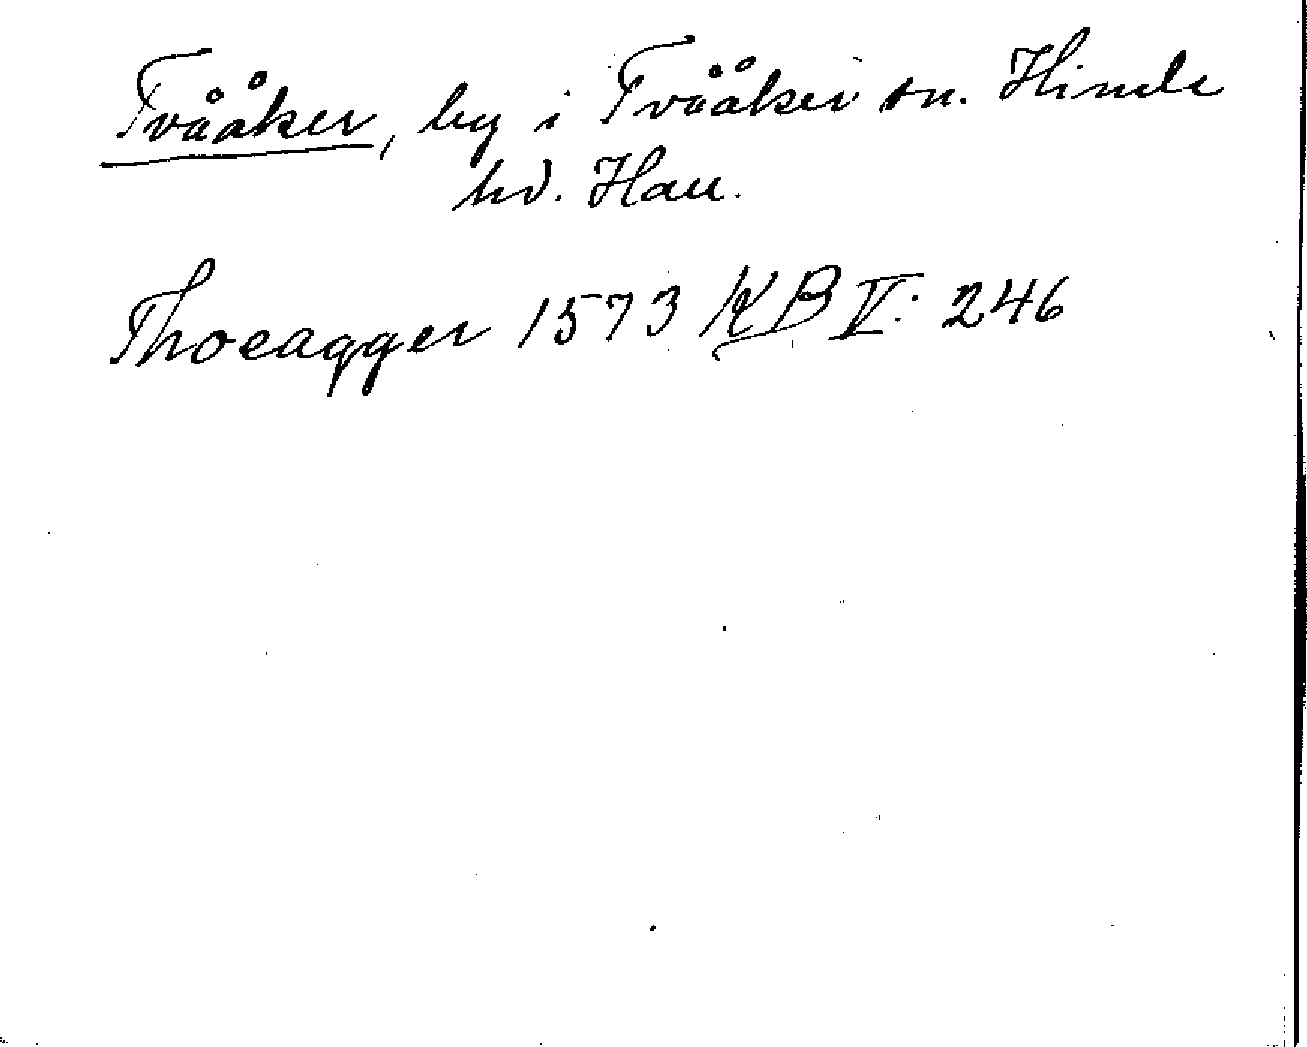 Tvååker, by i Tvååker sn. Himle
hd. Hall.
Thoeagger 1573 KB V: 246